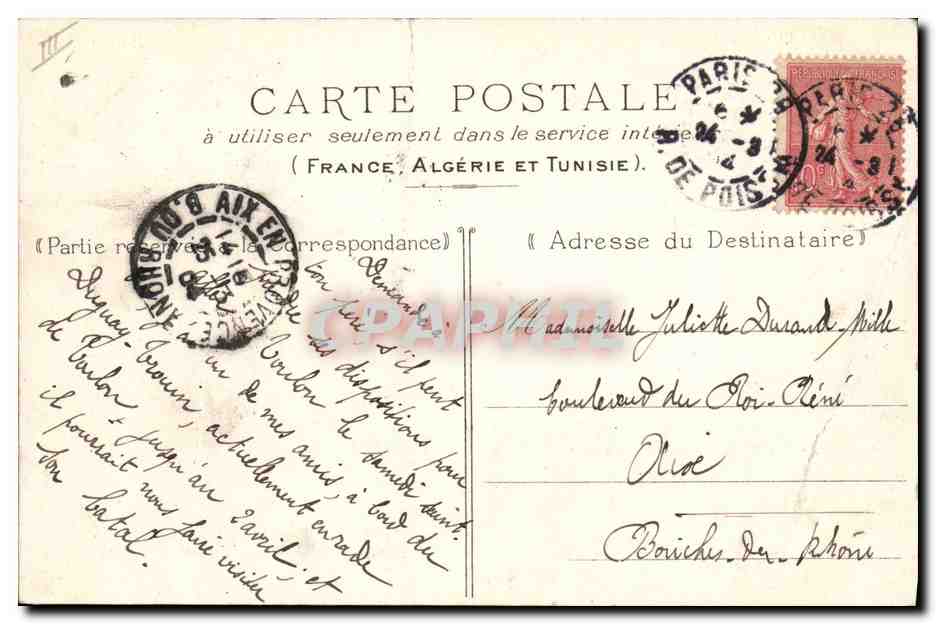 III
CARTE POSTALE
à utiliser seulement dans le service intérieur
(FRANCE, ALGÉRIE ET TUNISIE).
PARIS
24 -3
R. DE POIS
REPUBLIQUE FRANÇAIS
AIX EN PROVENCE
B. DU RHONE
(Partie réservée à la Correspondance)
( Adresse du Destinataire)
Demande à
ton père s'il peut
prendre ses dispositions pour
aller à Toulon le samedi saint.
J'ai un de mes amis, à bord du
Duguay-Trouin, actuellement en rade
de Toulon - jusqu'au 2 avril, et
il pourrait nous faire visiter
son bateau.
Mademoiselle Juliette Durand-Mille
boulevard du Roi-Réné
Aix
Bouches-du-Rhône
CPAPHIL